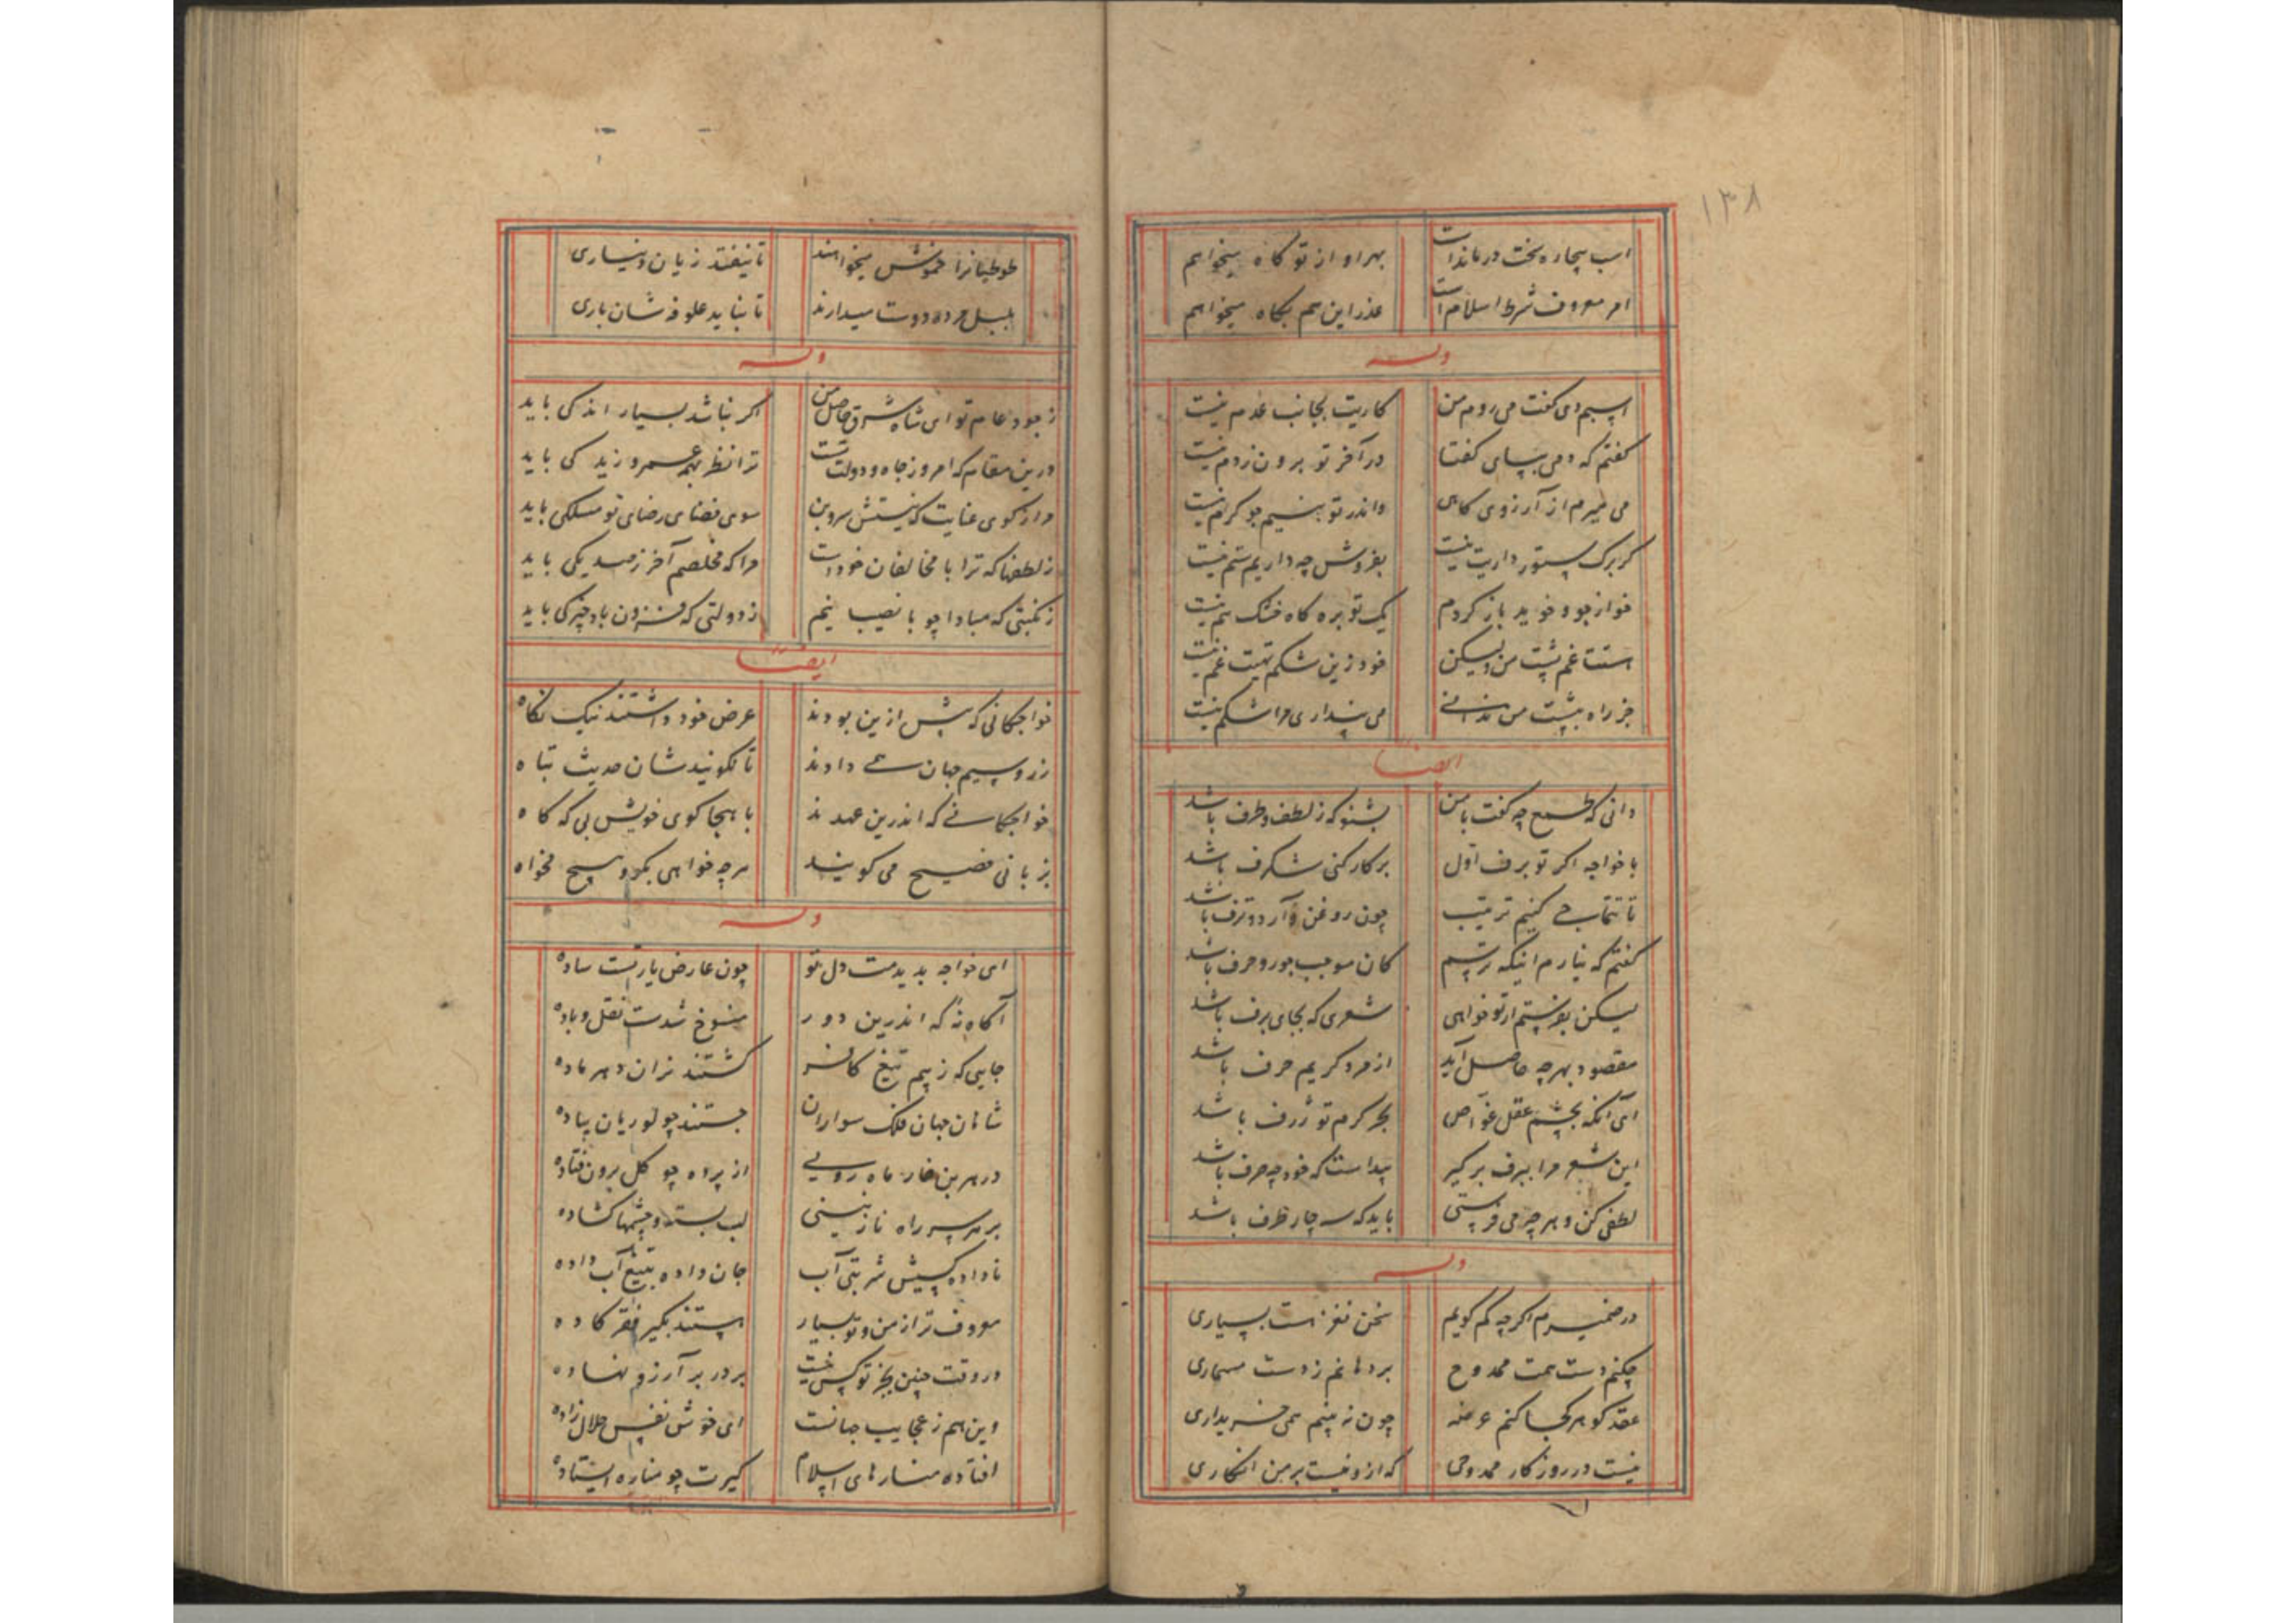 ۱۳۸
اسب بیچاره سخت درماندست بهر او از تو کاه میخواهم
امر معروف شرط اسلام است عذر این هم بگاه میخواهم
وله
اسبم دی گفت می روم من کاریت بجانب عدم نیست
گفتم که دمی بپای گفتا در آخر تو برون ز دم نیست
می میرم از آرزوی کاهی واندر تو به نیم جو کرم نیست
گر برگ ستور داریت نیست بفروش چه داریم ستم نیست
خو از جو و خوید باز کردم یک توبره کاه خشک هم نیست
استت غم پشت من ولیکن خود زین شکم تهیت غم نیست
جز راه بپشت من ندانی می پنداری مرا شکم نیست
ایضا
دانی که طمع چه گفت با من بشنو که ز لطف و ظرف باشد
با خواجه اگر تو برف اول بر کار کنی شگرف باشد
تا تتماجی کنیم ترتیب چون روغن و آرد و ترف باشد
گفتم که نیارم اینکه ترسم کان موجب جور و حرف باشد
لیکن بفرستم ار تو خواهی شعری که بجای برف باشد
مقصود بهرچه حاصل آید از مرد کریم حرف باشد
ای آنکه بچشم عقل غواص بحر کرم تو ژرف باشد
این شعر مرا ببرف برگیر پیداست که خود چه صرف باشد
لطفی کن و هر چه می فرستی باید که سه چار ظرف باشد
وله
در ضمیرم اگرچه کم گویم سخن نغز است بسیاری
چکنم دست همت ممدوح بر دهانم زدست مسماری
عقد گوهر کجا کنم عرضه چون نه بینم همی خریداری
نیست در روزگار ممدوحی که ازو نیست بر من انکاری
طوطیانرا خموش میخواهند تا نیفتد زیان دیناری
بلبل مرده دوست میدارند تا نباید علوفه شان باری
وله
ز جود عام تو ای شاه شرق حاصل من اگر نباشد بسیار اندکی باید
درین مقام که امروز جاه و دولت تست ترا نظر بهمه عمرو و زید کی باید
مرا ز کوی عنایت که نیستش سر و بن سوی فضای رضای تو مسلکی باید
ز لطفها که ترا با مخالفان خودست مرا که مخلصم آخر ز صد یکی باید
ز نکبتی که مبادا چو با نصیب نیم ز دولتی که فزون باد چیزکی باید
ایضا
خواجگانی که پیش ازین بودند عرض خود داشتند نیک نگاه
زر و سیم جهان همی دادند تا نگویندشان حدیث تباه
خواجگانی که اندرین عهدند با هجا گوی خویش بی که گاه
بزبانی فصیح می گویند هرچه خواهی بگو و هیچ مخواه
وله
ای خواجه بدیدمت دل تو چون عارض یار تست ساده
آگاه نه که اندرین دور منسوخ شدست نقل و باده
جایی که ز بیم تیغ کافر گشتند نران دهر ماده
شاهان جهان فلک سواران جستند چو لوریان پیاده
در هر بن خار ماه رویی از پرده چو گل برون فتاده
بر هر سر راه نازنینی لب بسته و چشمها گشاده
ناداده کسیش شربتی آب جان داده بتیغ آب داده
معروف تر از من و تو بسیار هستند بگیر فقر گاده
در وقت چنین بجز تو کس نیست بر در بر آرزو نهاده
وین هم ز عجایب جهانست ای خوش نفس حلال زاده
افتاده منارهای اسلام کیرت چو مناره ایستاده